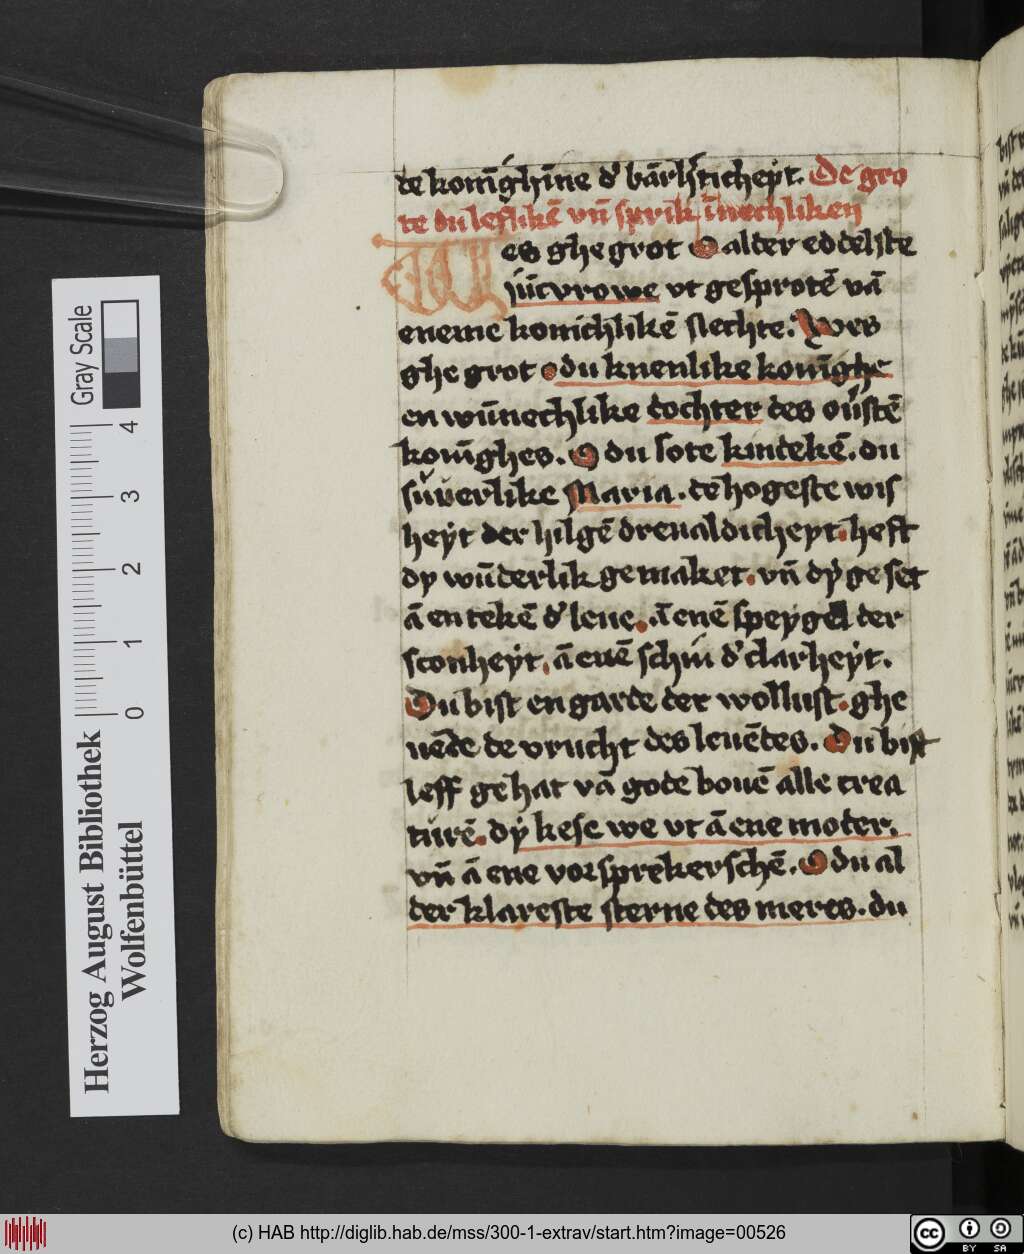 de konīghīne d' bārh'ticheyt. De gro
te du leflikē vn̄ sprik īnechliken
Wes ghe grot O alder eddelste
jūcvrowe vt gesprotē vā
eneme konichlikē slechte. Wes
ghe grot o du knenlike konīghe
en wūnechlike dochter des ou'stē
konīghes. O du sote kindekē. du
suuerlike Maria. de hogeste wis
heyt der hilgē dreualdicheyt. heft
dy wūderlik gemaket. vn̄ dy geset
ā en tekē d' leue. ā enē speygel der
sconheyt. ā enē schin d' clarheyt.
Du bist en garde der wollust. ghe
uēde de vrucht des leuēdes. Du bist
leff gehat vā gode bouē alle crea
turē. dy kese we vt ā ene moder.
vn̄ ā ene vorsprekerschē. O du al
der klareste sterne des meres. du
Gray Scale
4
3
2
1
0
Herzog August Bibliothek
Wolfenbüttel
(c) HAB http://diglib.hab.de/mss/300-1-extrav/start.htm?image=00526
cc
BY SA